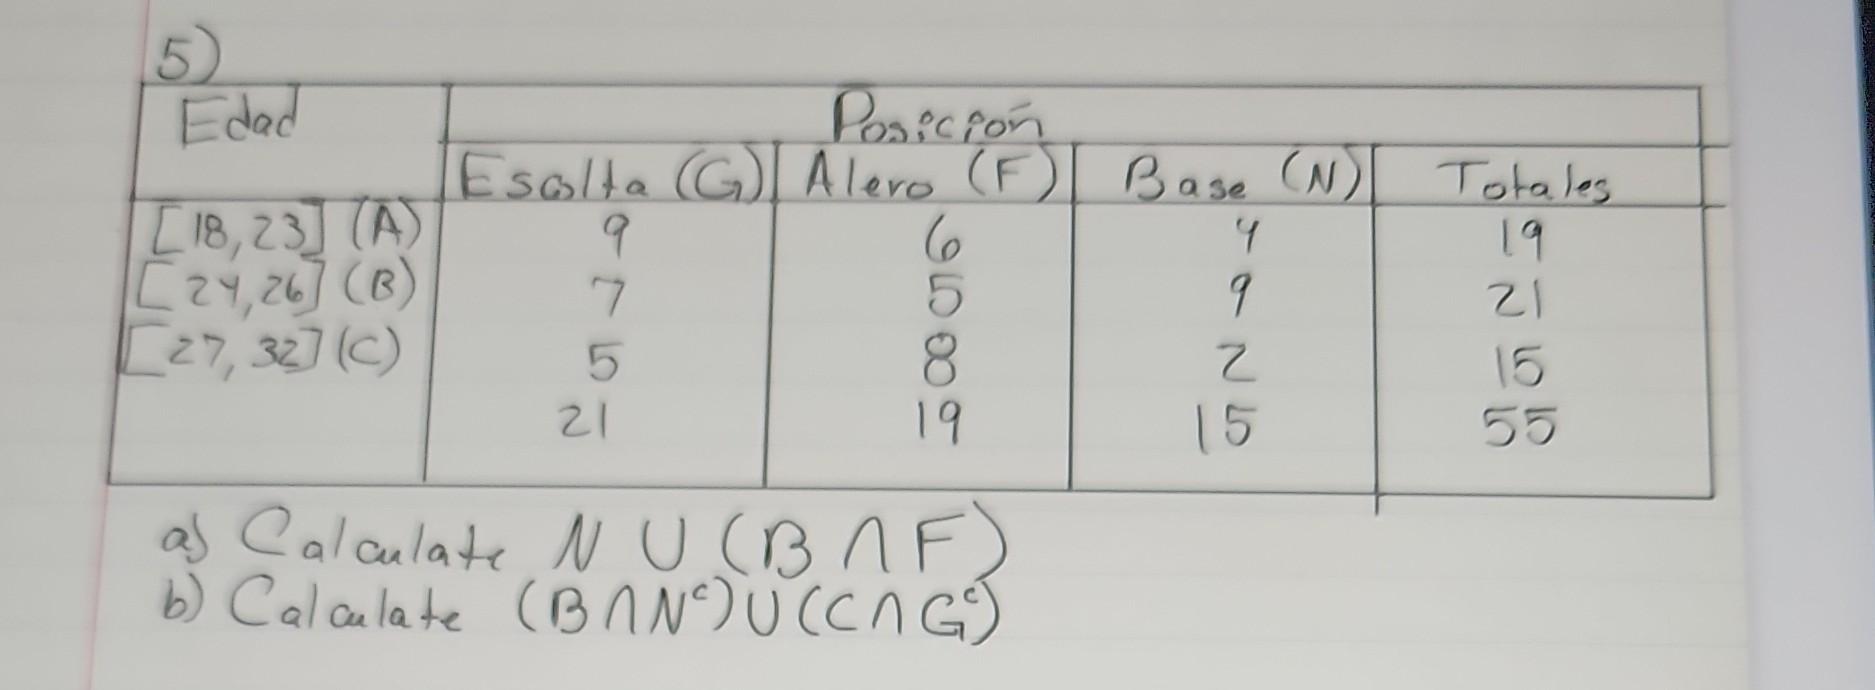 5)
Edad Posición
Escolta (G) Alero (F) Base (N) Totales
[18,23] (A) 9 6 4 19
[24,26] (B) 7 5 9 21
[27,32] (C) 5 8 2 15
21 19 15 55
a) Calculate N ∪ (B ∩ F)
b) Calculate (B∩Nᶜ)∪(C∩Gᶜ)